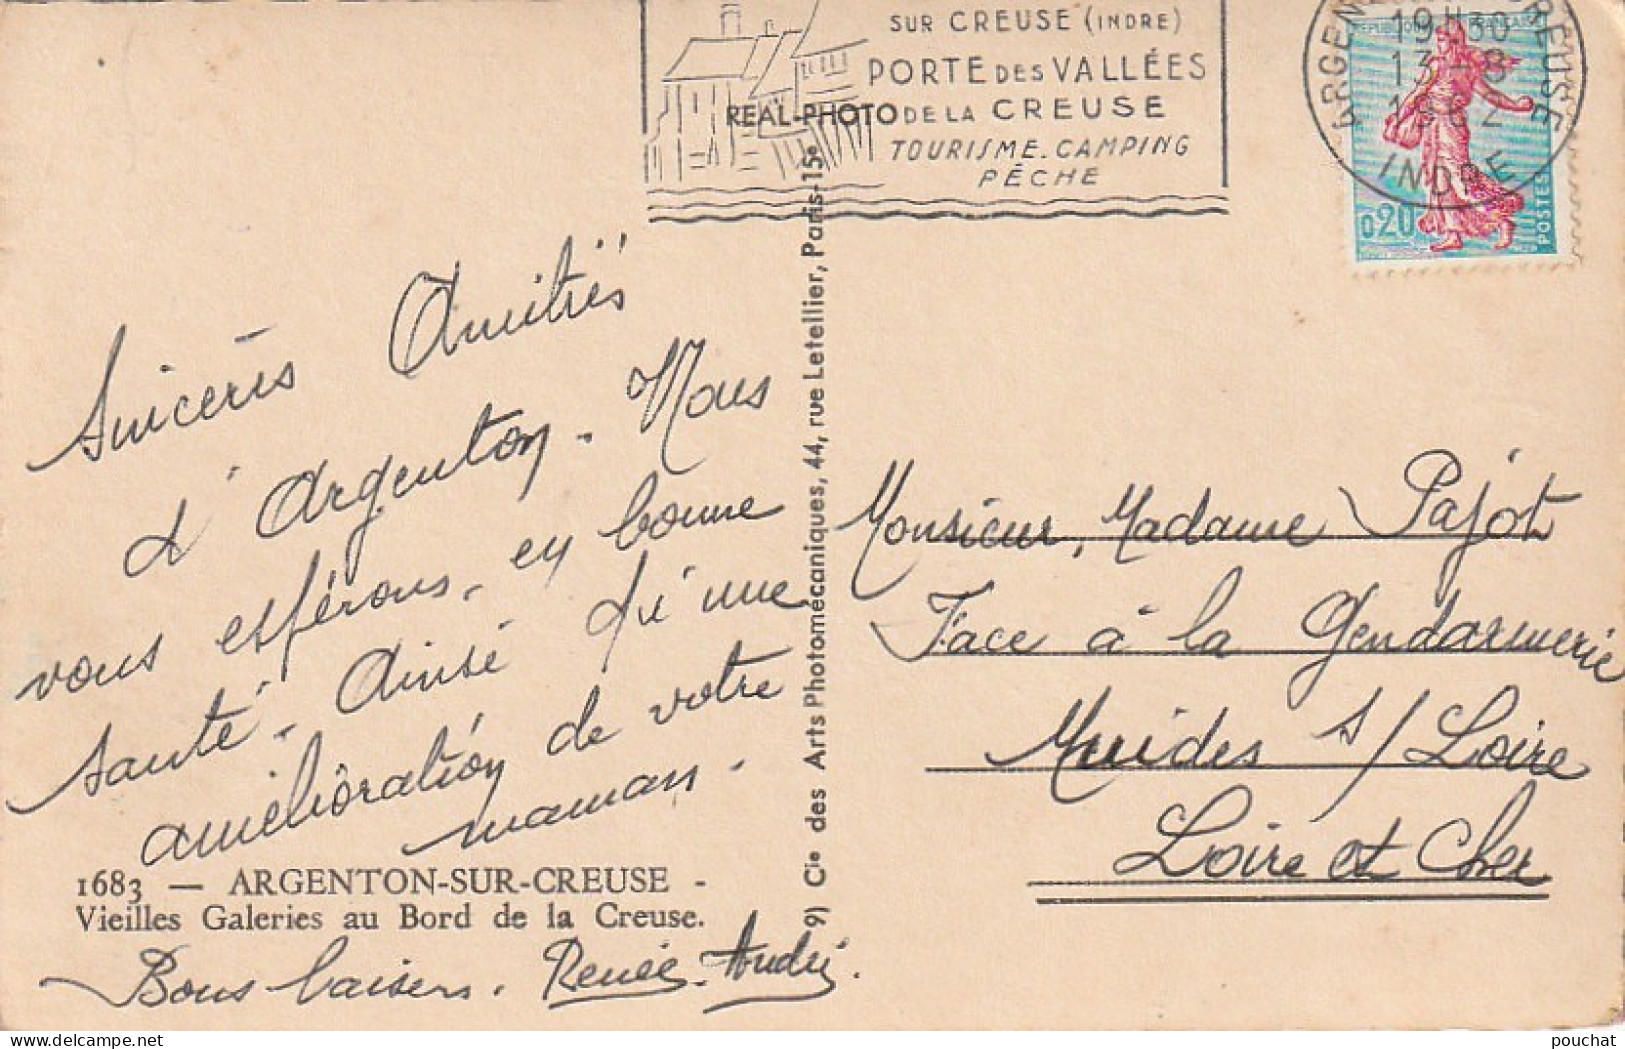 SUR CREUSE (INDRE)
PORTE DES VALLÉES
DE LA CREUSE
TOURISME. CAMPING
PÊCHE
REAL-PHOTO
19H30
13-8
1962
INDRE
0.20
POSTES
Sincères Amitiés
d'Argenton. Nous
vous espérons, en bonne
santé. Ainsi qu'une
amélioration de votre
maman.
1683 — ARGENTON-SUR-CREUSE -
Vieilles Galeries au Bord de la Creuse.
Bons baisers. Renée. André.
9) Cie des Arts Photomécaniques, 44, rue Letellier, Paris-15e
Monsieur, Madame Pajot
Face à la Gendarmerie
Muides s/ Loire
Loire et Cher
pouchat